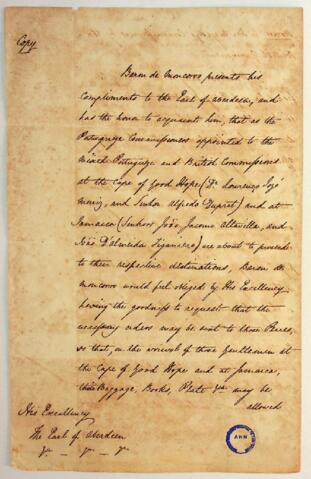 Copy
Baron de Moncorvo, presents his
Compliments to the Earl of Aberdeen, and
has the honor to acquaint him, that as the
Portuguese Commissioners appointed to the
mixed Portuguese and British Commissions
at the Cape of Good Hope (Dr. Lourenço José
Moniz, and Senhor Alfredo Duprat) and at
Jamaica (Senhores João Jacome Altavilla, and
João d'Almeida ) are about to proceed
to their respective destinations, Baron de
Moncorvo would feel obliged by His Excellency
having the goodness to request that the
necessary orders may be sent to those Places,
so that, on the arrival of those Gentlemen at
the Cape of Good Hope and at Jamaica,
their Baggage, Books, Plate &ca may be
allowed
His Excellency
The Earl of Aberdeen
&ca _ &ca _ &ca
AHN